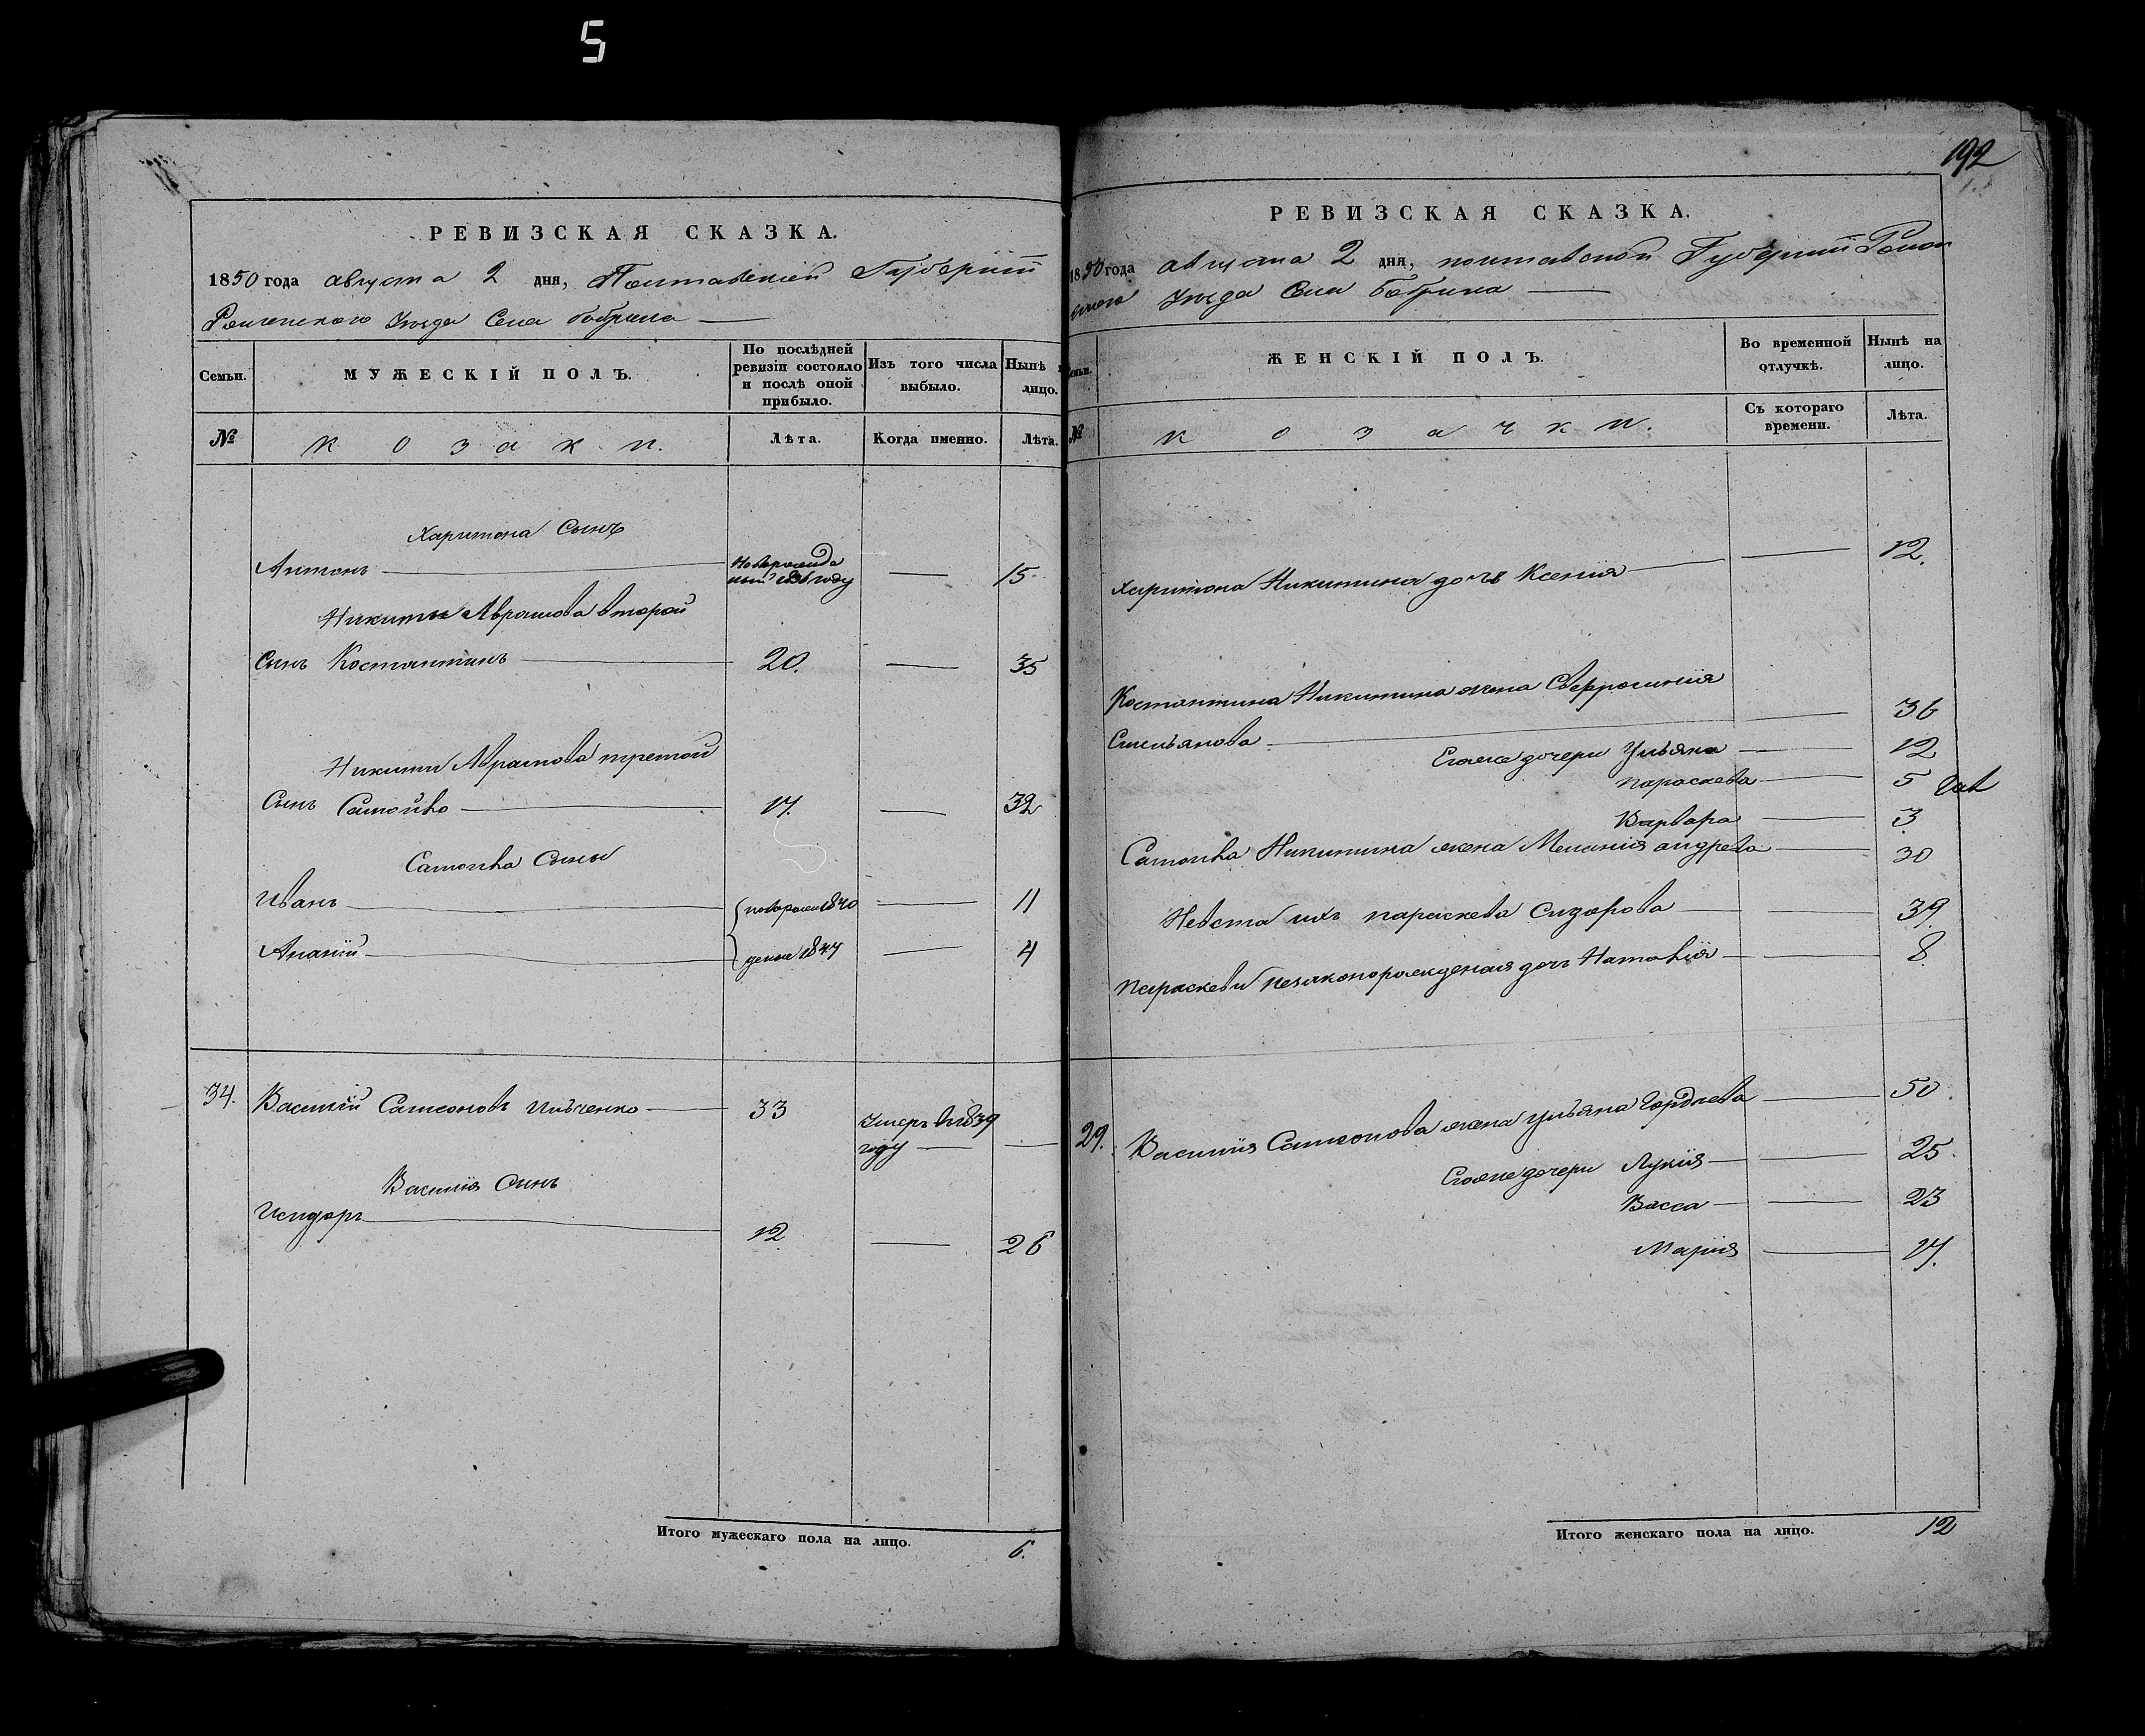 5
РЕВИЗСКАЯ СКАЗКА.
1850 года августа 2 дня, Полтавской Губернии
Роменского Уезда Села Бобрика
Семьи.
МУЖЕСКІЙ ПОЛЪ.
По послѣдней ревизіи состояло и послѣ оной прибыло.
Изъ того числа выбыло.
Нынѣ
лицо.
№
козаки.
Лѣта.
Когда именно.
Лѣта.
Харитона Сынъ
Антонъ
Новорожде
ный 1836 году
15
Никиты Аврамова второй
Сынъ Костантинъ 20. 35
Никити Аврамова третой
Сынъ Самойло 17. 32
Самойла Сыны
Иванъ новорож 1840 11
Ананій дены 1847 4
34. Василій Самсоновъ Ильченко 33 Умеръ въ 1839
году
Василія Сынъ
Исидоръ 12 26
Итого мужескаго пола на лицо. 6.
192
РЕВИЗСКАЯ СКАЗКА.
1850 года августа 2 дня, полтавской Губернии Ромен
ского Уезда Села Бобрика
ЖЕНСКІЙ ПОЛЪ.
Во временной отлучкѣ.
Нынѣ на лицо.
№
козачки.
Съ котораго времени.
Лѣта.
Харитона Никитина дочь Ксения 12.
Костантина Никитина жена Евфросиния
Емельянова 36
Егоже дочери Ульяна 12
Параскева 5
Варвара 3
Самойла Никитина жена Мелания андрева 30
Невста ихъ параскева Сидорова 39.
Параскеви незаконорожденая дочь Наталія 8.
29. Василия Самсонова жена Ульяна Гордеева 50
Егоже дочери Лукія 25.
Васса 23
Марія 17.
Итого женскаго пола на лицо. 12